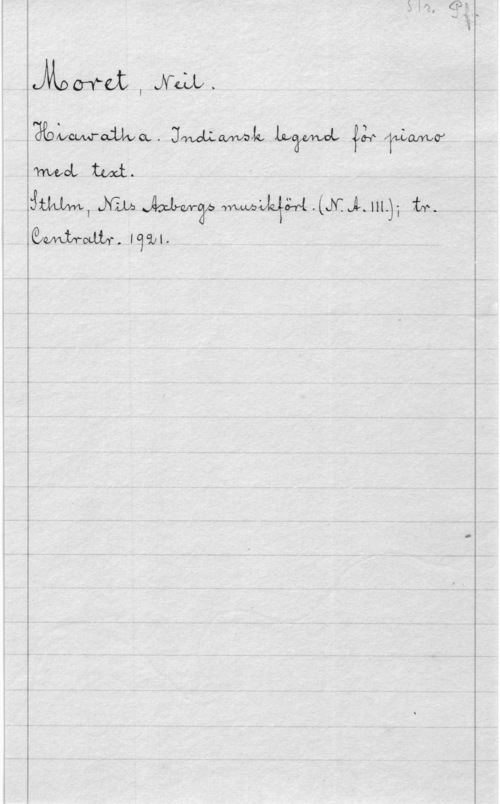 Moret, Neil.
Hiawatha. Indiansk legend för piano
med text.
Sthlm, Nils Axbergs musikförl. (N. A. 111.); tr.
Centraltr. 1921.